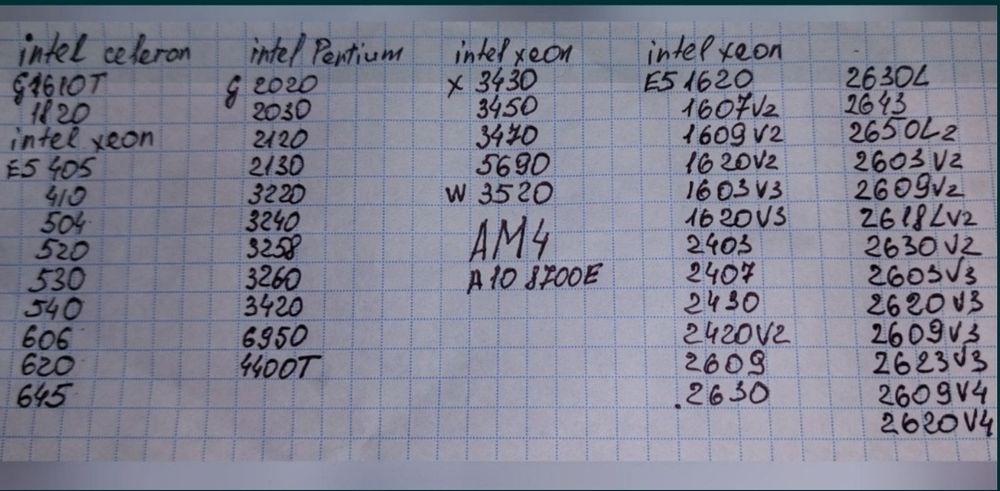 intel celeron
G1610T
1820
intel xeon
E5 405
410
504
520
530
540
606
620
645
intel Pentium
G 2020
2030
2120
2130
3220
3240
3258
3260
3420
6950
4400T
intel xeon
X 3430
3450
3470
5690
W 3520
AM4
A10 8700E
intel xeon
E5 1620
1607V2
1609V2
1620V2
1603V3
1620V3
2403
2407
2430
2420V2
2609
.2630
2630L
2643
2650L2
2603V2
2609V2
2618LV2
2630V2
2603V3
2620V3
2609V3
2623V3
2609V4
2620V4